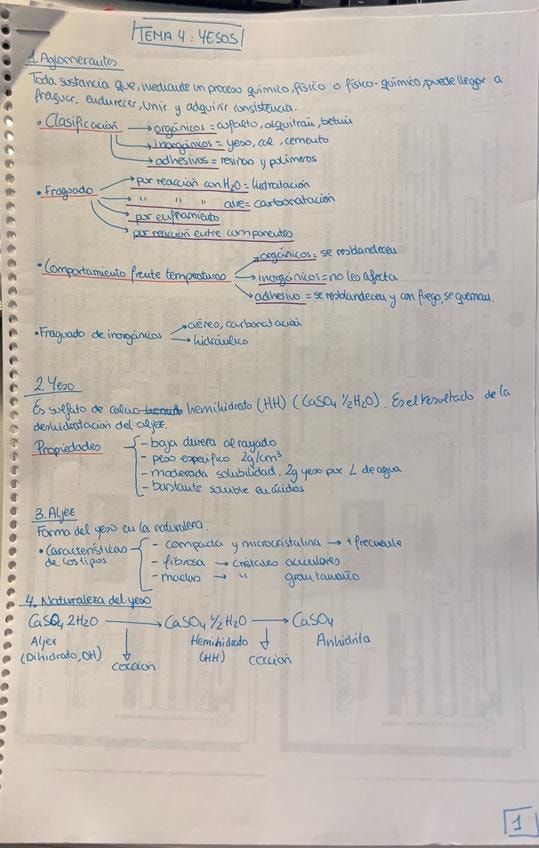 TEMA 4: YESOS
1. Aglomerantes
Toda sustancia que, mediante un proceso químico, físico o físico-químico, puede llegar a
fraguar, endurecer, unir y adquirir consistencia.
• Clasificación → orgánicos = asfalto, alquitrán, betún
→ inorgánicos = yeso, cal, cemento
→ adhesivos = resinas y polímeros
• Fraguado → por reacción con H2O = hidratación
→ " " " aire = carbonatación
→ por enfriamiento
→ por reacción entre componentes
• Comportamiento frente temperaturas → orgánicos = se reblandecen
→ inorgánicos = no les afecta
→ adhesivo = se reblandecen y con fuego, se queman.
• Fraguado de inorgánicos → aéreo, carbonatación
→ hidráulico
2. Yeso
Es sulfato de calcio hemihidrato (HH) (CaSO4 1/2H2O). Es el resultado de la
deshidratación del aljez.
Propiedades - baja dureza al rayado
- peso específico 2g/cm3
- moderada solubilidad. 2g yeso por L de agua
- bastante soluble en ácidos
3. Aljez
Forma del yeso en la naturaleza.
• Características - compacta y microcristalina → + frecuente
de los tipos - fibrosa → cristales aciculares
- maclas → " gran tamaño
4. Naturaleza del yeso
CaSO4 2H2O → CaSO4 1/2H2O → CaSO4
Aljez Hemihidrato Anhidrita
(Dihidrato, DH) (HH)
cocción cocción
1